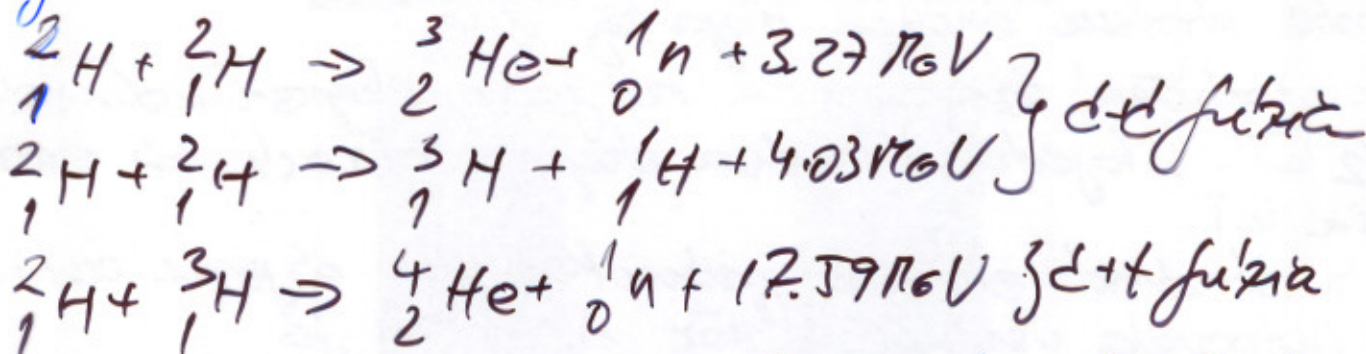 ²₁H + ²₁H → ³₂He + ¹₀n + 3.27 MeV } d+d fúzia
²₁H + ²₁H → ³₁H + ¹₁H + 4.03 MeV
²₁H + ³₁H → ⁴₂He + ¹₀n + 17.59 MeV } d+t fúzia